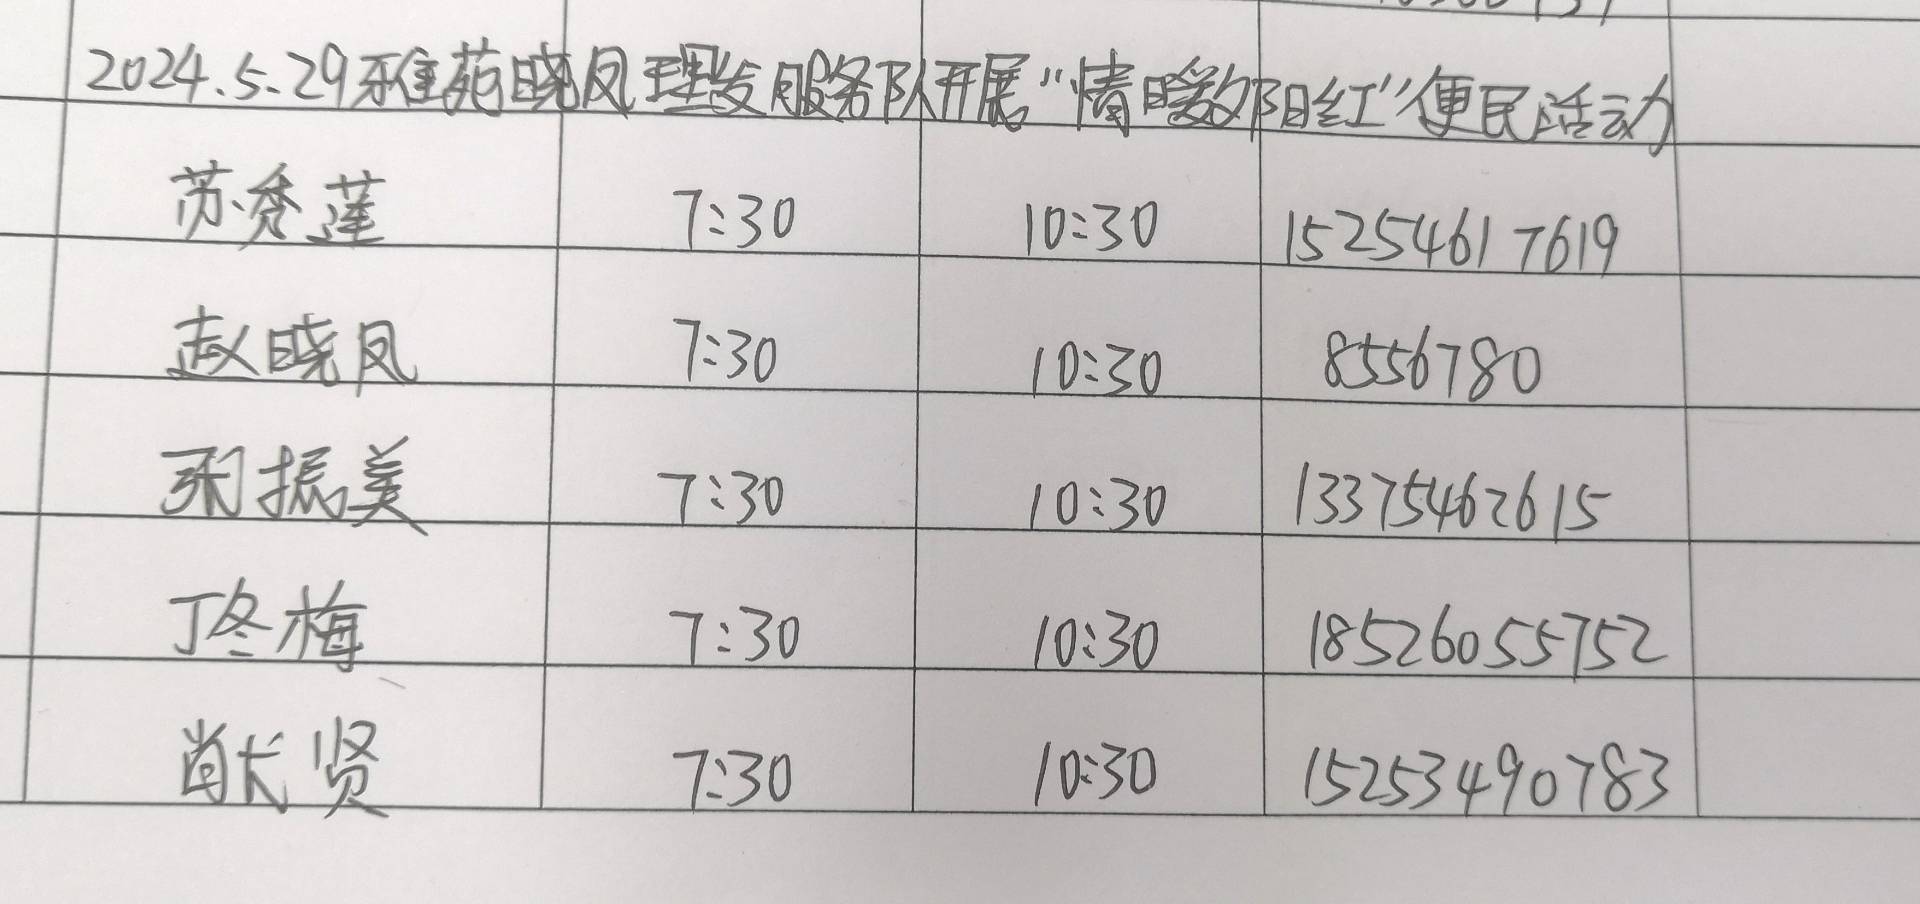 2024.5.29雅苑晓凤理发服务队开展“情暖夕阳红”便民活动
苏秀莲 7:30 10:30 15254617619
赵晓凤 7:30 10:30 8556780
张振美 7:30 10:30 13375462615
丁冬梅 7:30 10:30 18526055752
贤 7:30 10:30 15253490783